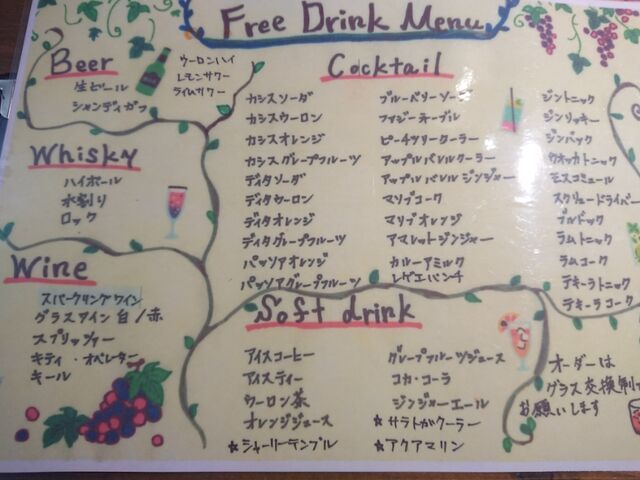 Free Drink Menu
Beer
生ビール
シャンディガフ
ウーロンハイ
レモンサワー
ライムサワー
Whisky
ハイボール
水割り
ロック
Wine
スパークリングワイン
グラスワイン 白/赤
スプリッツァー
キティ・オペレーター
キール
Cocktail
カシスソーダ
カシスウーロン
カシスオレンジ
カシスグレープフルーツ
ディタソーダ
ディタウーロン
ディタオレンジ
ディタグレープフルーツ
パッソアオレンジ
パッソアグレープフルーツ
ブルーベリーソーダ
ファジーネーブル
ピーチツリークーラー
アップルバレルクーラー
アップルバレルジンジャー
マリブコーク
マリブオレンジ
アマレットジンジャー
カルーアミルク
レゲエパンチ
ジントニック
ジンリッキー
ジンバック
ウォッカトニック
モスコミュール
スクリュードライバー
ブルドック
ラムトニック
ラムコーク
テキーラトニック
テキーラコーク
Soft drink
アイスコーヒー
アイスティー
ウーロン茶
オレンジジュース
☆シャーリーテンプル
グレープフルーツジュース
コカ・コーラ
ジンジャーエール
☆サラトガクーラー
☆アクアマリン
オーダーは
グラス交換制で
お願いします